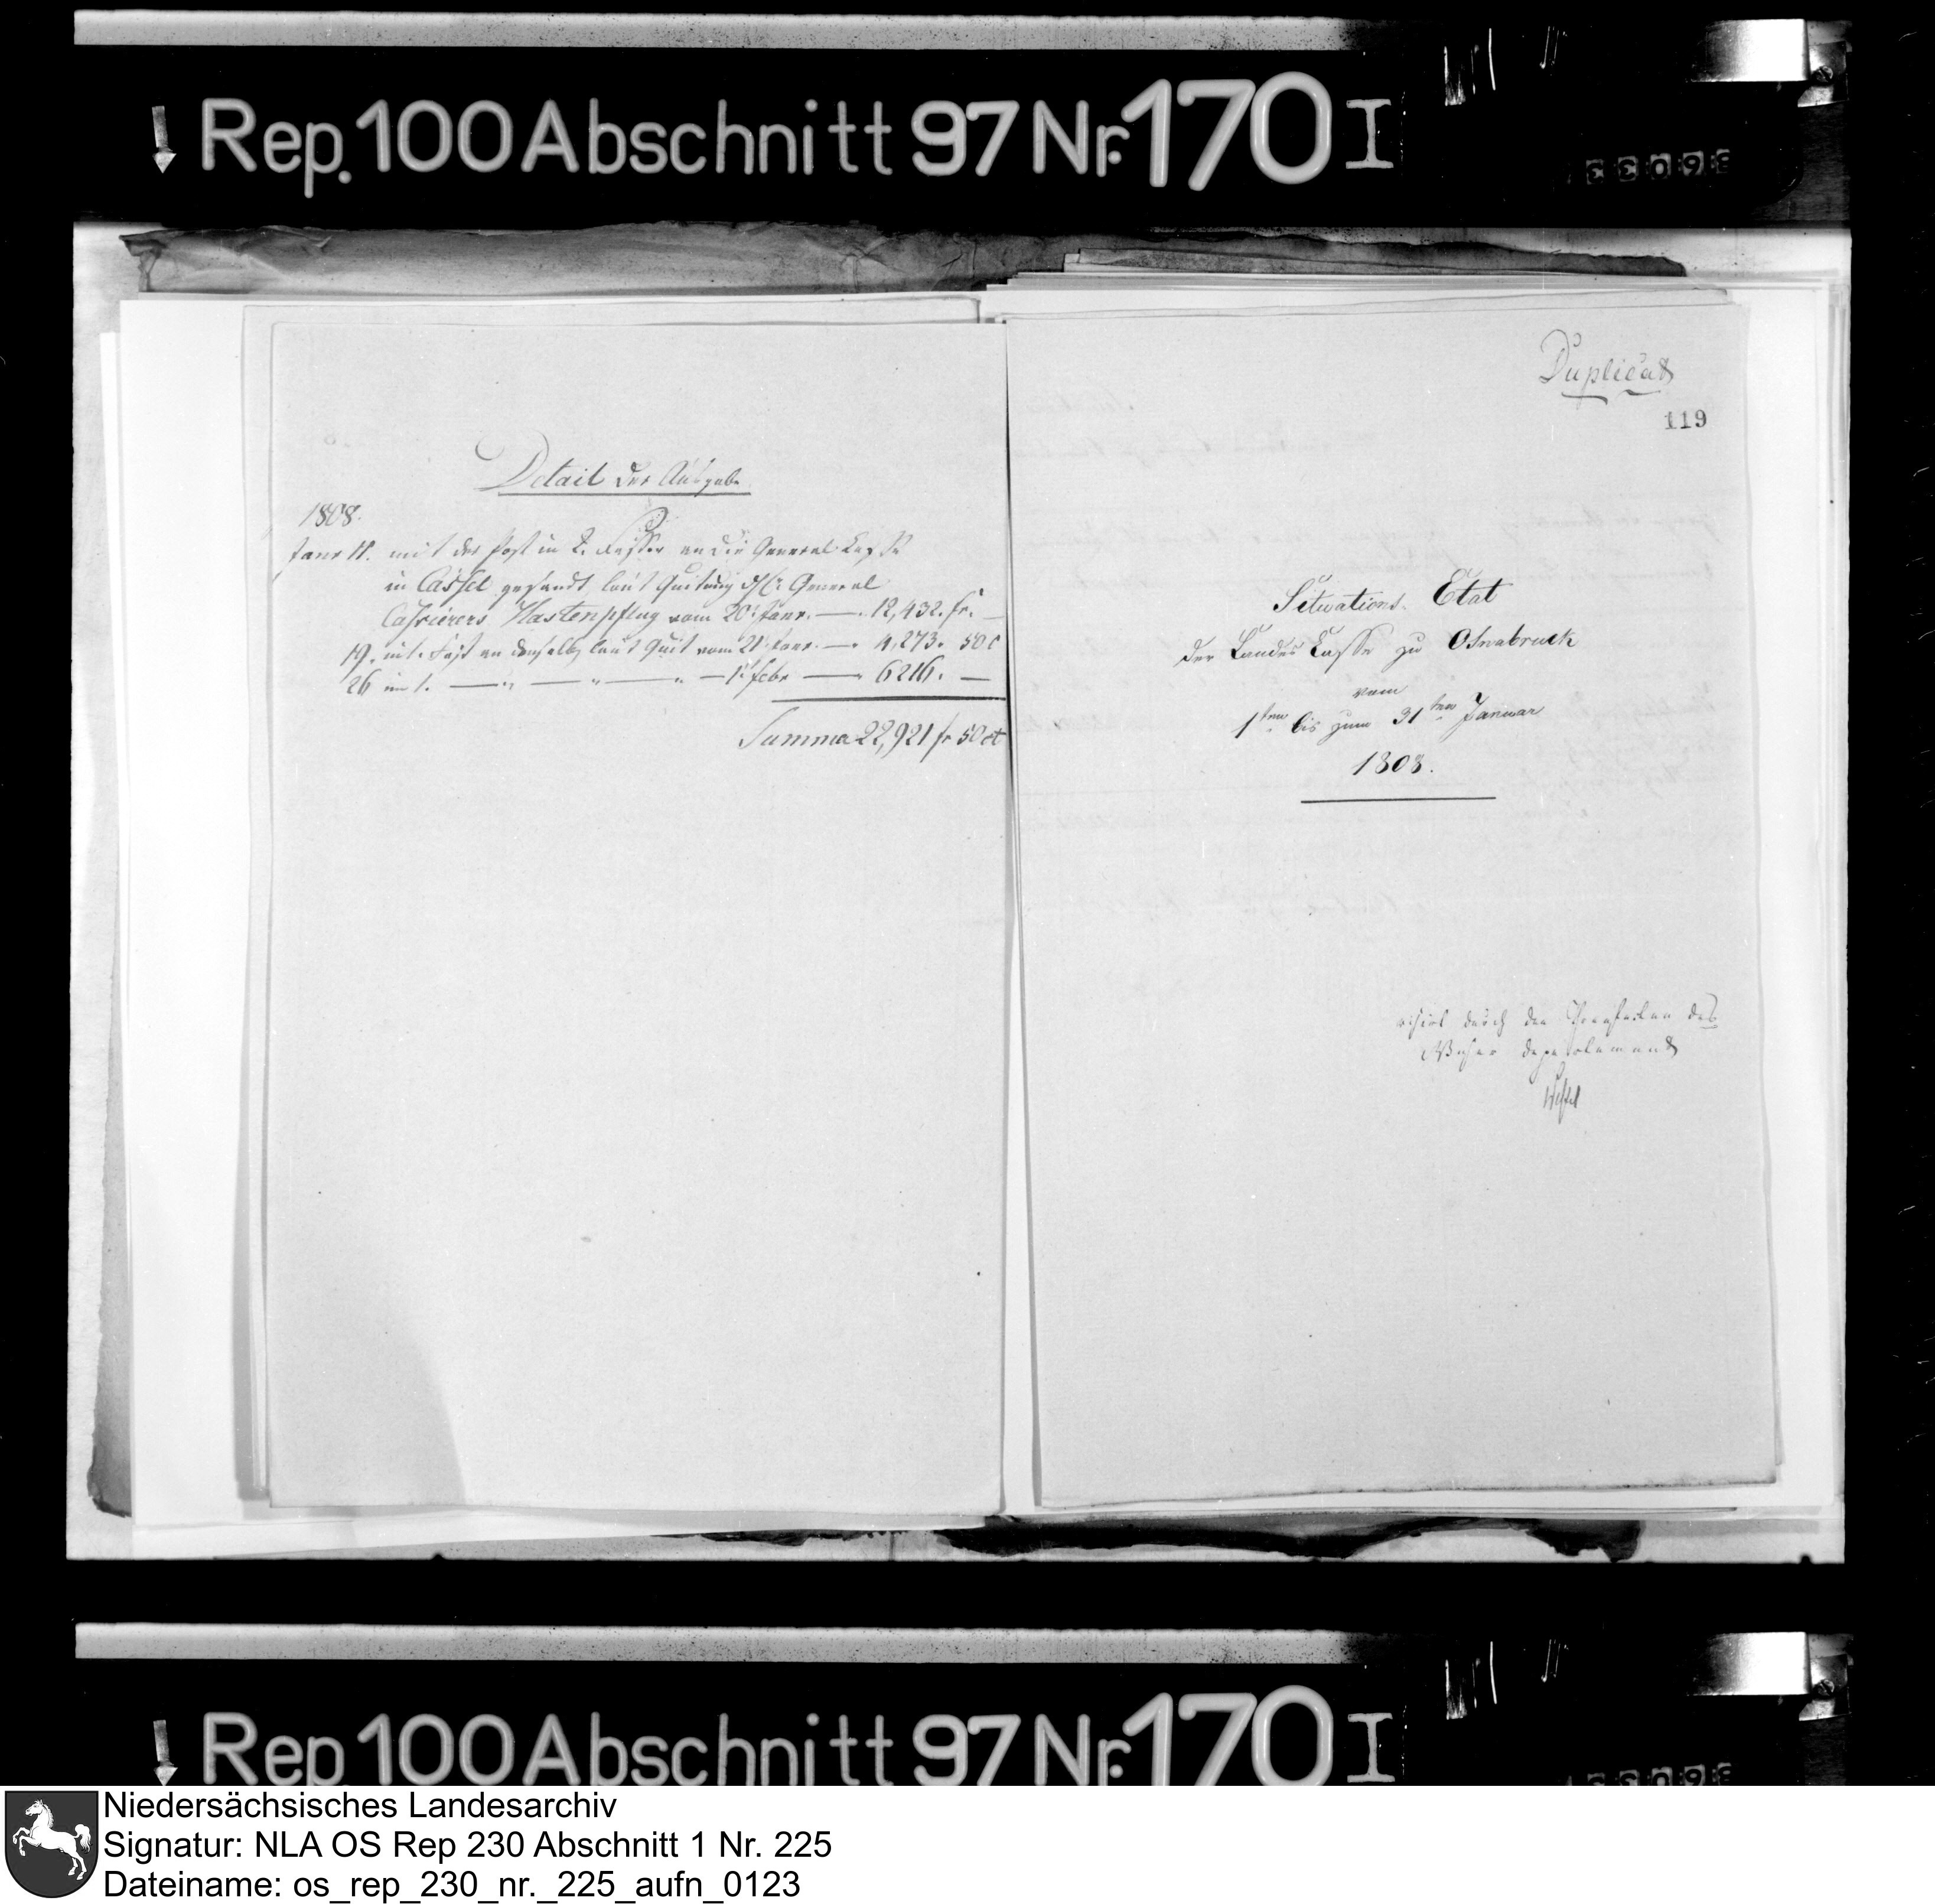 Rep. 100 Abschnitt 97 Nr. 170 I
36033
Detail der Ausgabe
1808.
Janr 11. mit der Post in 2. Fässer an die General Casse
in Cassel gesandt, laut Quitung des H. General
Cassierers Hastenpflug vom 20t. Janr. — 12,432. fr. —
19. mit. Fass an denselb. laut Quit vom 21t. Janr. — 4,273. 50 c
26 mit. — " — " — " — 1t. febr — 6216. —
Summa 22,921 fr 50 ct
Duplicat
119
Situations Etat
der Landes Casse zu Osnabruck
vom
1ten bis zum 31ten Januar
1808.
visirt durch den Praefecten des
Weser departements
Rep. 100 Abschnitt 97 Nr. 170 I
36033
Niedersächsisches Landesarchiv
Signatur: NLA OS Rep 230 Abschnitt 1 Nr. 225
Dateiname: os_rep_230_nr._225_aufn_0123